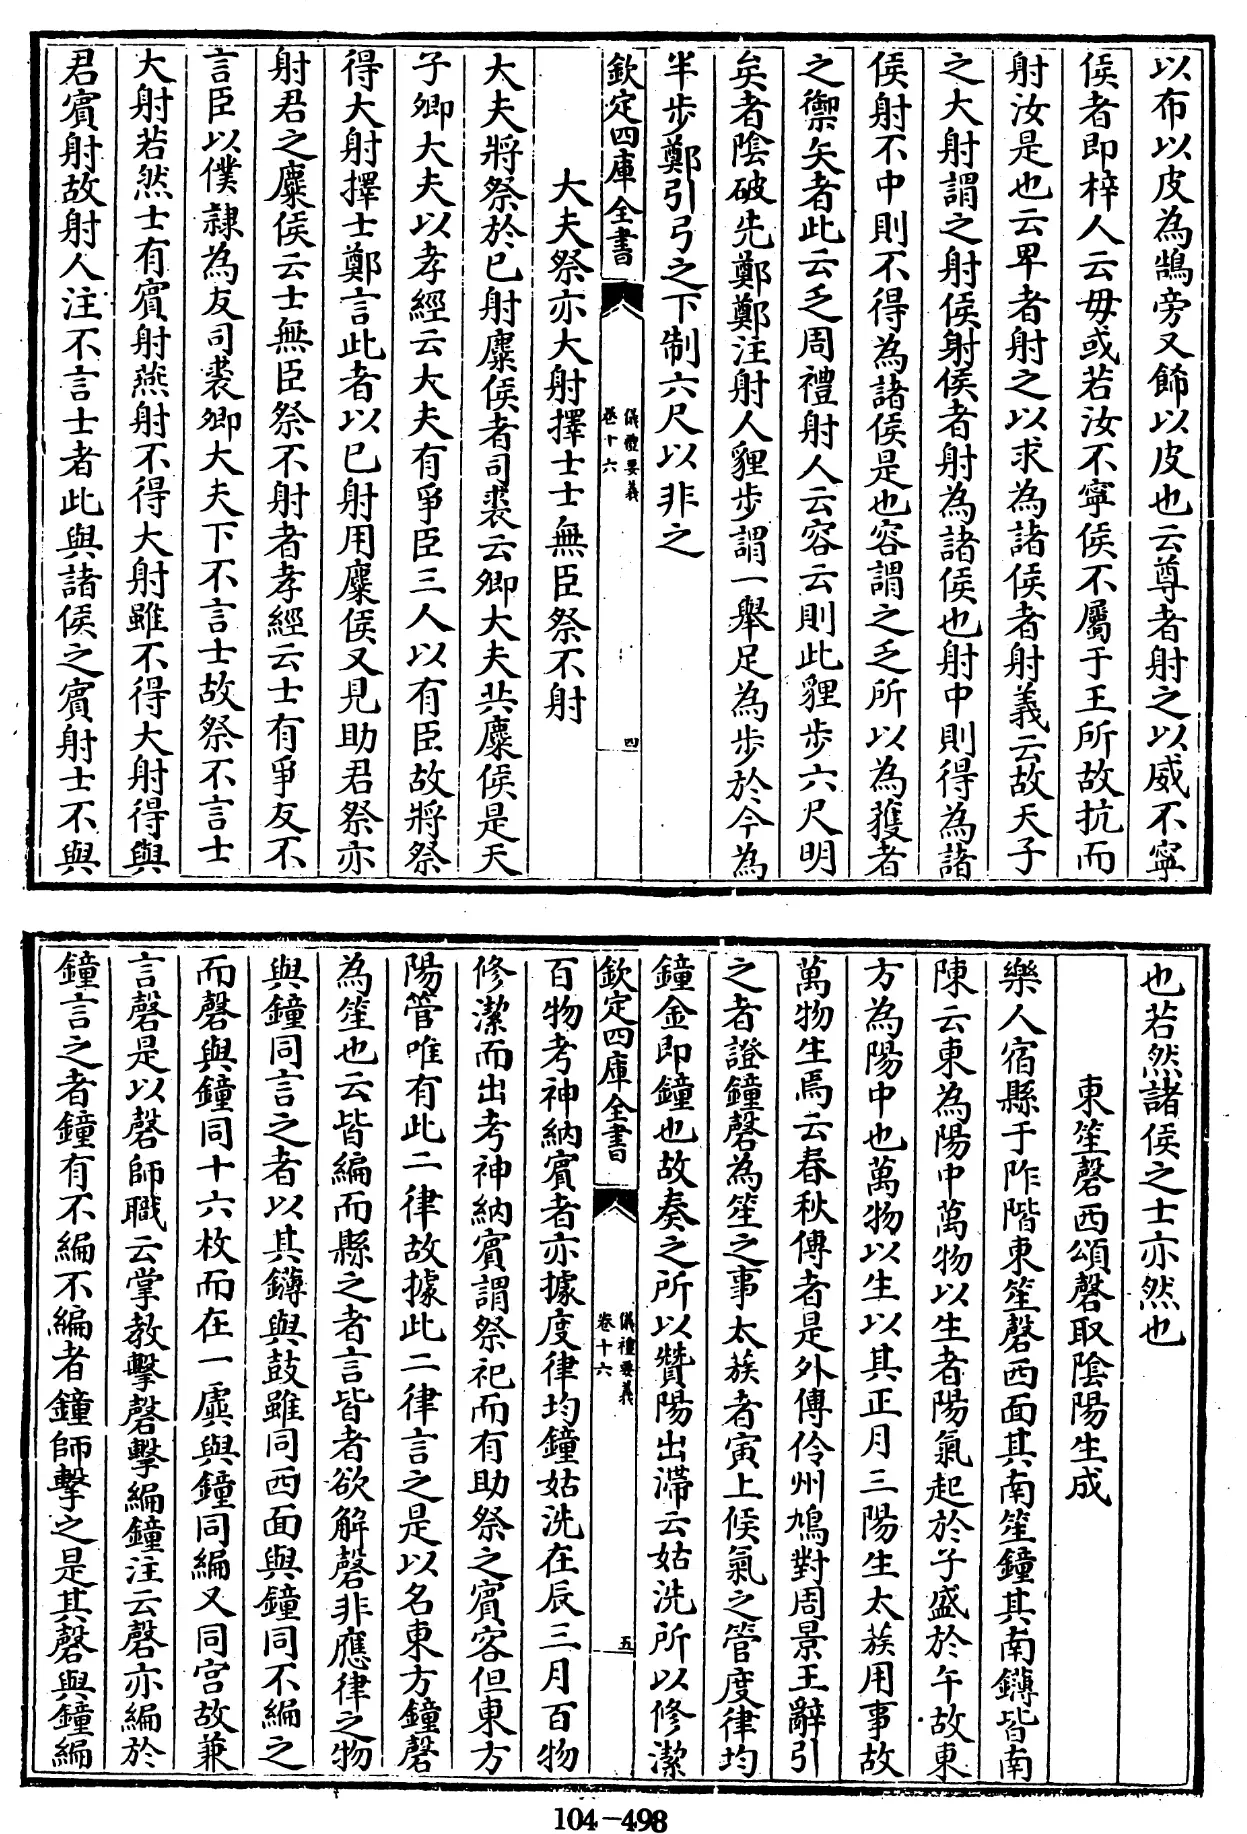 以布以皮為鵠旁又飾以皮也云尊者射之以威不寧
侯者即梓人云毋或若汝不寧侯不屬于王所故抗而
射汝是也云卑者射之以求為諸侯者射義云故天子
之大射謂之射侯射侯者射為諸侯也射中則得為諸
侯射不中則不得為諸侯是也容謂之乏所以為獲者
之禦矢者此云乏周禮射人云容云則此貍步六尺明
矣者陰破先鄭鄭注射人貍步謂一舉足為步於今為
半步鄭引弓之下制六尺以非之
欽定四庫全書
儀禮要義
卷十六
四
大夫祭亦大射擇士士無臣祭不射
大夫將祭於已射麋侯者司裘云卿大夫共麋侯是天
子卿大夫以孝經云大夫有爭臣三人以有臣故將祭
得大射擇士鄭言此者以已射用麋侯又見助君祭亦
射君之麋侯云士無臣祭不射者孝經云士有爭友不
言臣以僕隷為友司裘卿大夫下不言士故祭不言士
大射若然士有賓射燕射不得大射雖不得大射得與
君賓射故射人注不言士者此與諸侯之賓射士不與
也若然諸侯之士亦然也
東笙磬西頌磬取陰陽生成
樂人宿縣于阼階東笙磬西面其南笙鐘其南鑮皆南
陳云東為陽中萬物以生者陽氣起於子盛於午故東
方為陽中也萬物以生以其正月三陽生太蔟用事故
萬物生焉云春秋傳者是外傳伶州鳩對周景王辭引
之者證鐘磬為笙之事太蔟者寅上候氣之管度律均
鐘金即鐘也故奏之所以贊陽出滯云姑洗所以修潔
百物考神納賓者亦據度律均鐘姑洗在辰三月百物
修潔而出考神納賓謂祭祀而有助祭之賓客但東方
陽管唯有此二律故據此二律言之是以名東方鐘磬
為笙也云皆編而縣之者言皆者欲解磬非應律之物
與鐘同言之者以其鑮與鼓雖同西面與鐘同不編之
而磬與鐘同十六枚而在一虡與鐘同編又同宫故兼
言磬是以磬師職云掌教擊磬擊編鐘注云磬亦編於
鐘言之者鐘有不編不編者鐘師擊之是其磬與鐘編
欽定四庫全書
儀禮要義
卷十六
五
104-498